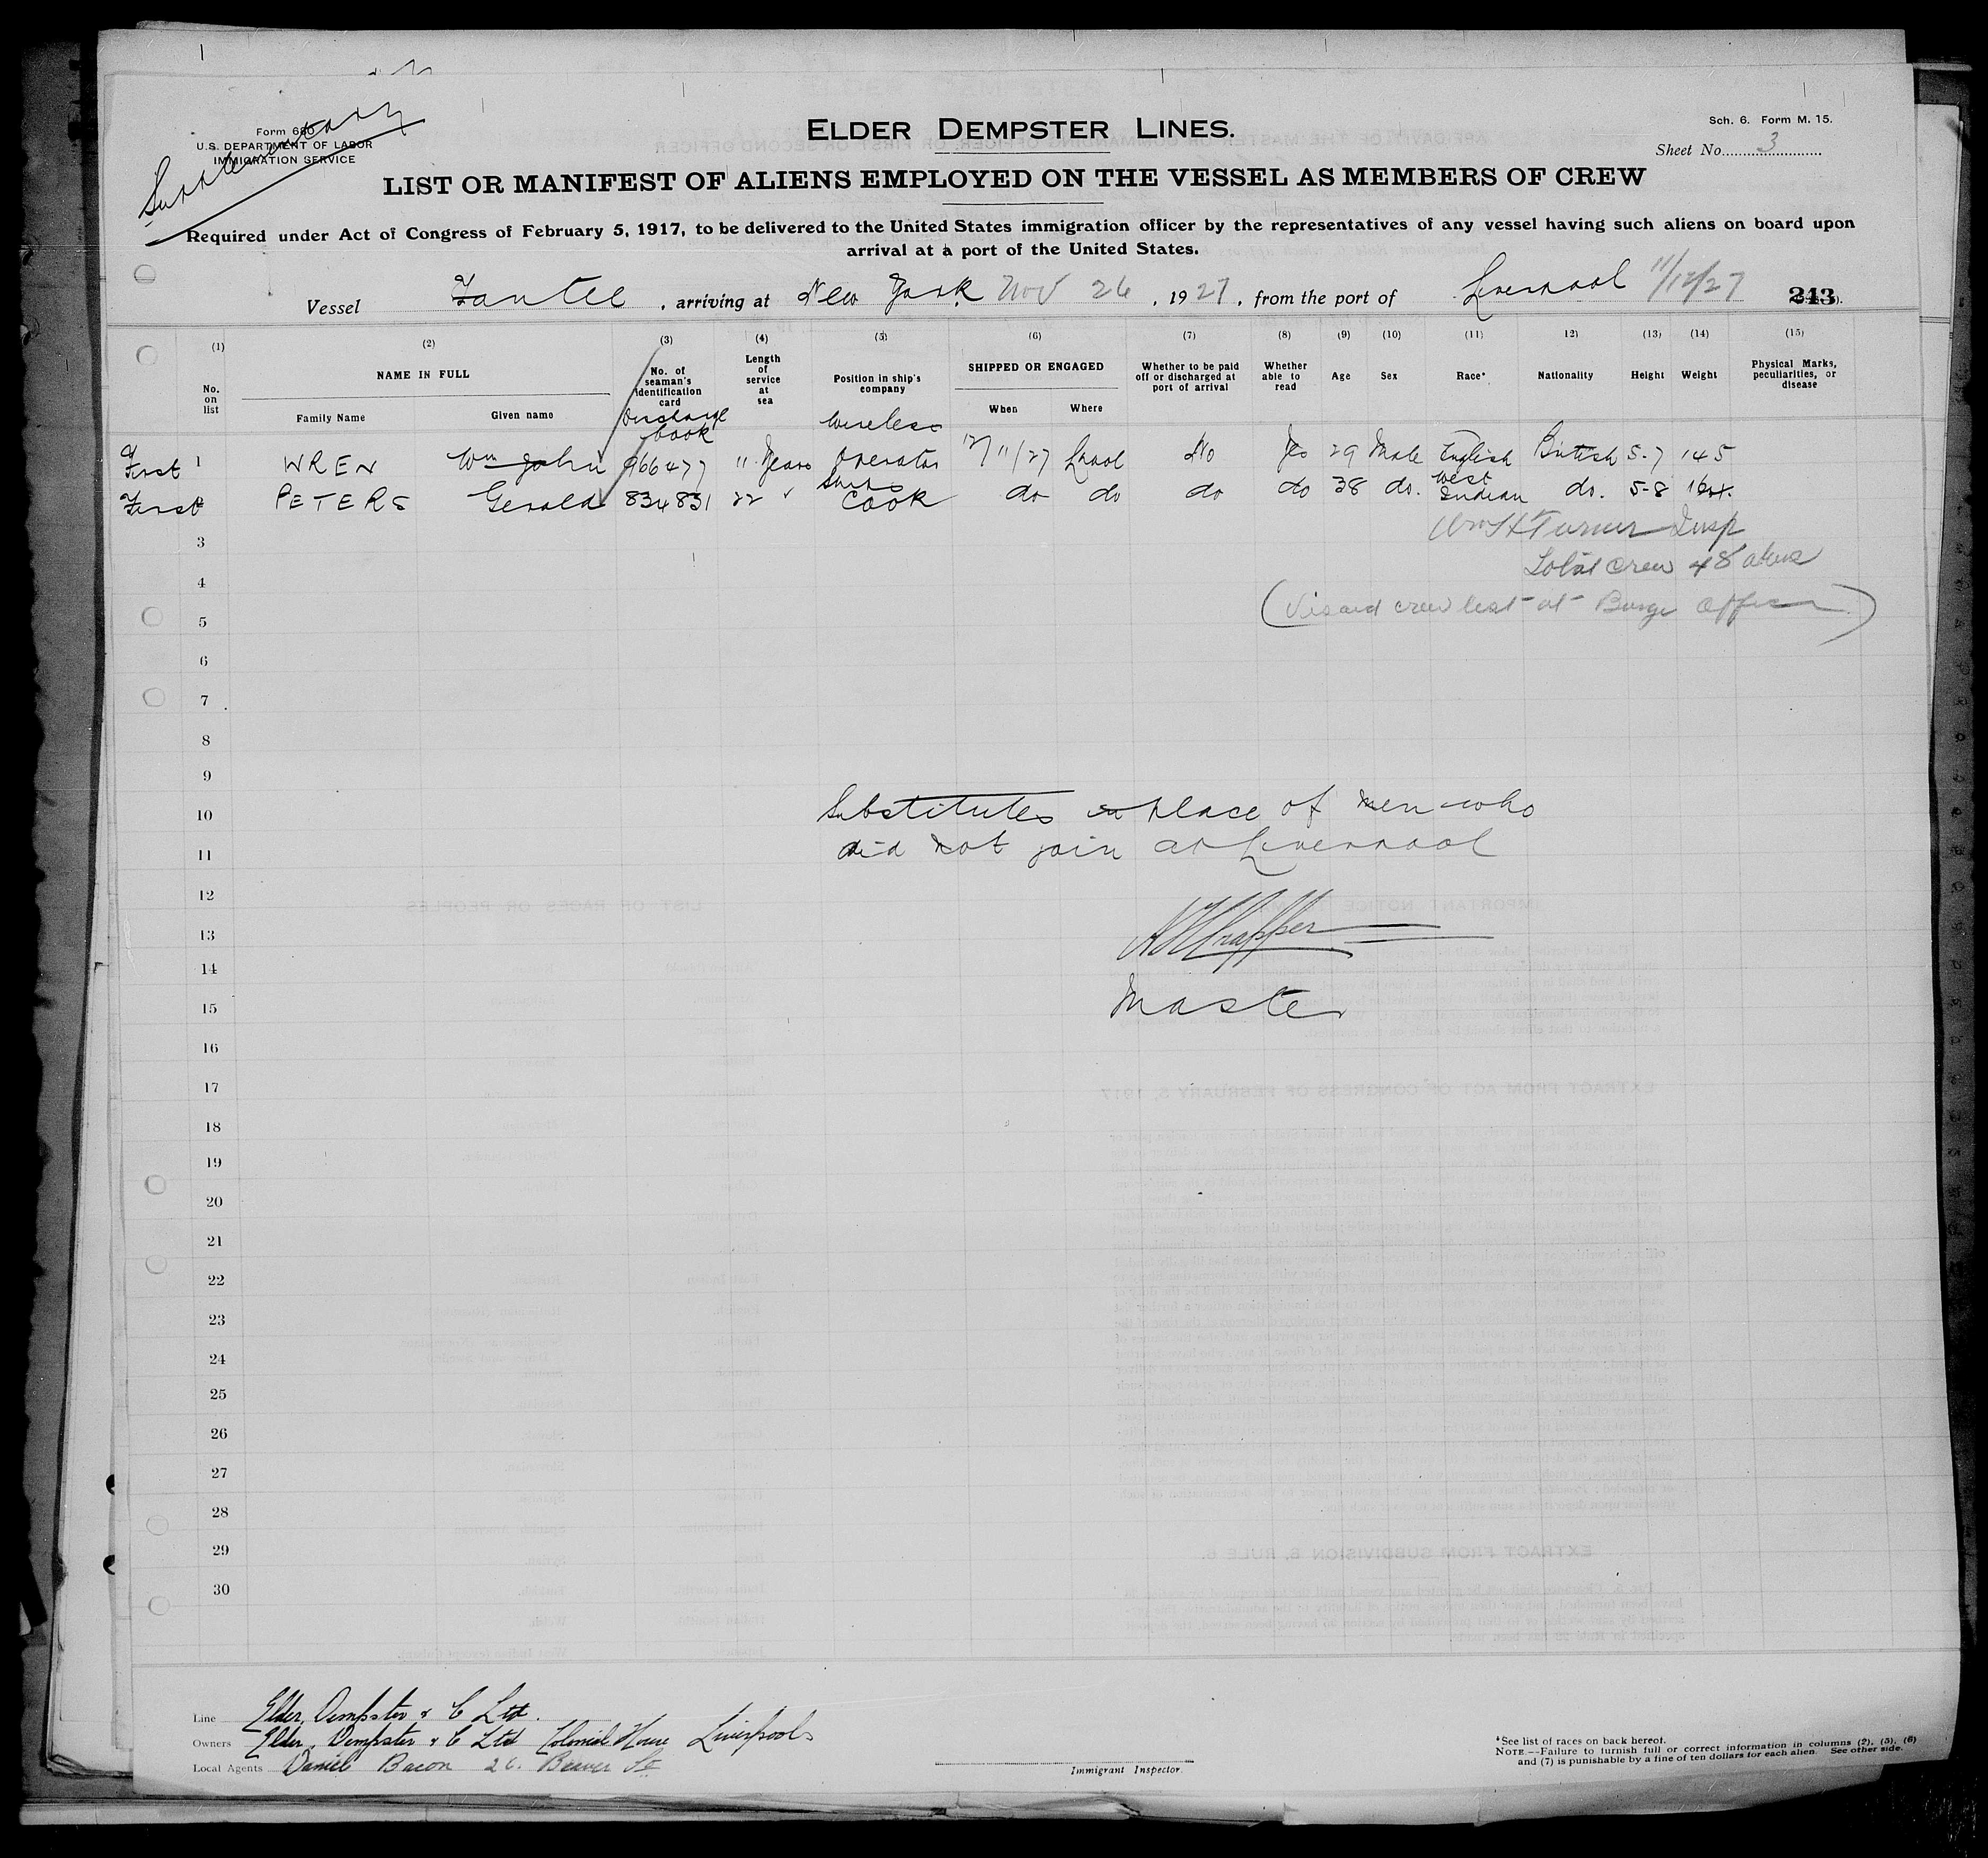 Supplementary
Form 680
U.S. DEPARTMENT OF LABOR
IMMIGRATION SERVICE
ELDER DEMPSTER LINES.
Sch. 6. Form M. 15.
Sheet No. 3
LIST OR MANIFEST OF ALIENS EMPLOYED ON THE VESSEL AS MEMBERS OF CREW
Required under Act of Congress of February 5, 1917, to be delivered to the United States immigration officer by the representatives of any vessel having such aliens on board upon
arrival at a port of the United States.
Vessel Fantee, arriving at New York Nov 26, 1927, from the port of Liverpool 11/12/27 243
(1) (2) (3) (4) (5) (6) (7) (8) (9) (10) (11) (12) (13) (14) (15)
No. on list NAME IN FULL Family Name Given name No. of seaman's identification card Discharge book Length of service at sea Position in ship's company SHIPPED OR ENGAGED When Where Whether to be paid off or discharged at port of arrival Whether able to read Age Sex Race* Nationality Height Weight Physical Marks, peculiarities, or disease
First 1 WREN Wm John 966477 11 Years Wireless Operator 12/11/27 Lpool No Yes 29 Male English British 5-7 145
First 2 PETERS Gerald 834831 22 " Ships Cook do do do do 38 do. West Indian do. 5-8
3 Wm H Turner Insp
4 Total crew 48 aliens
5 (Visaed crew list at Barge Office)
6
7
8
9
10 Substitutes in place of men who
11 did not join at Liverpool
12
13
14
15 Master
16
17
18
19
20
21
22
23
24
25
26
27
28
29
30
Line Elder Dempster & C Ltd.
Owners Elder Dempster & C Ltd Colonial House Liverpool
Local Agents Daniel Bacon 26. Beaver St
Immigrant Inspector.
*See list of races on back hereof.
NOTE.—Failure to furnish full or correct information in columns (2), (5), (6)
and (7) is punishable by a fine of ten dollars for each alien. See other side.